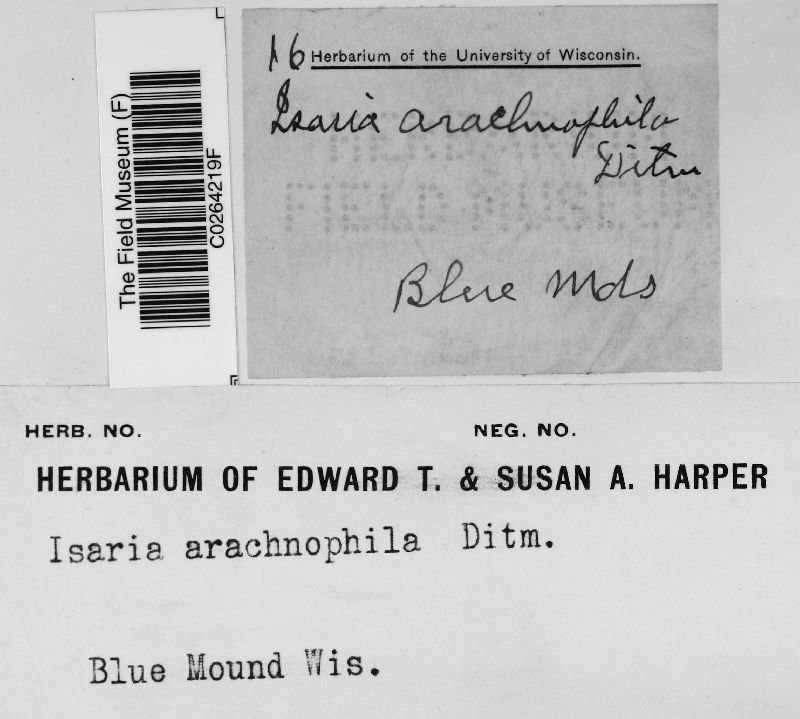 The Field Museum (F)
C0264219F
16 Herbarium of the University of Wisconsin.
Isaria arachnophila
Ditm
Blue Mds
HERB. NO. NEG. NO.
HERBARIUM OF EDWARD T. & SUSAN A. HARPER
Isaria arachnophila Ditm.
Blue Mound Wis.